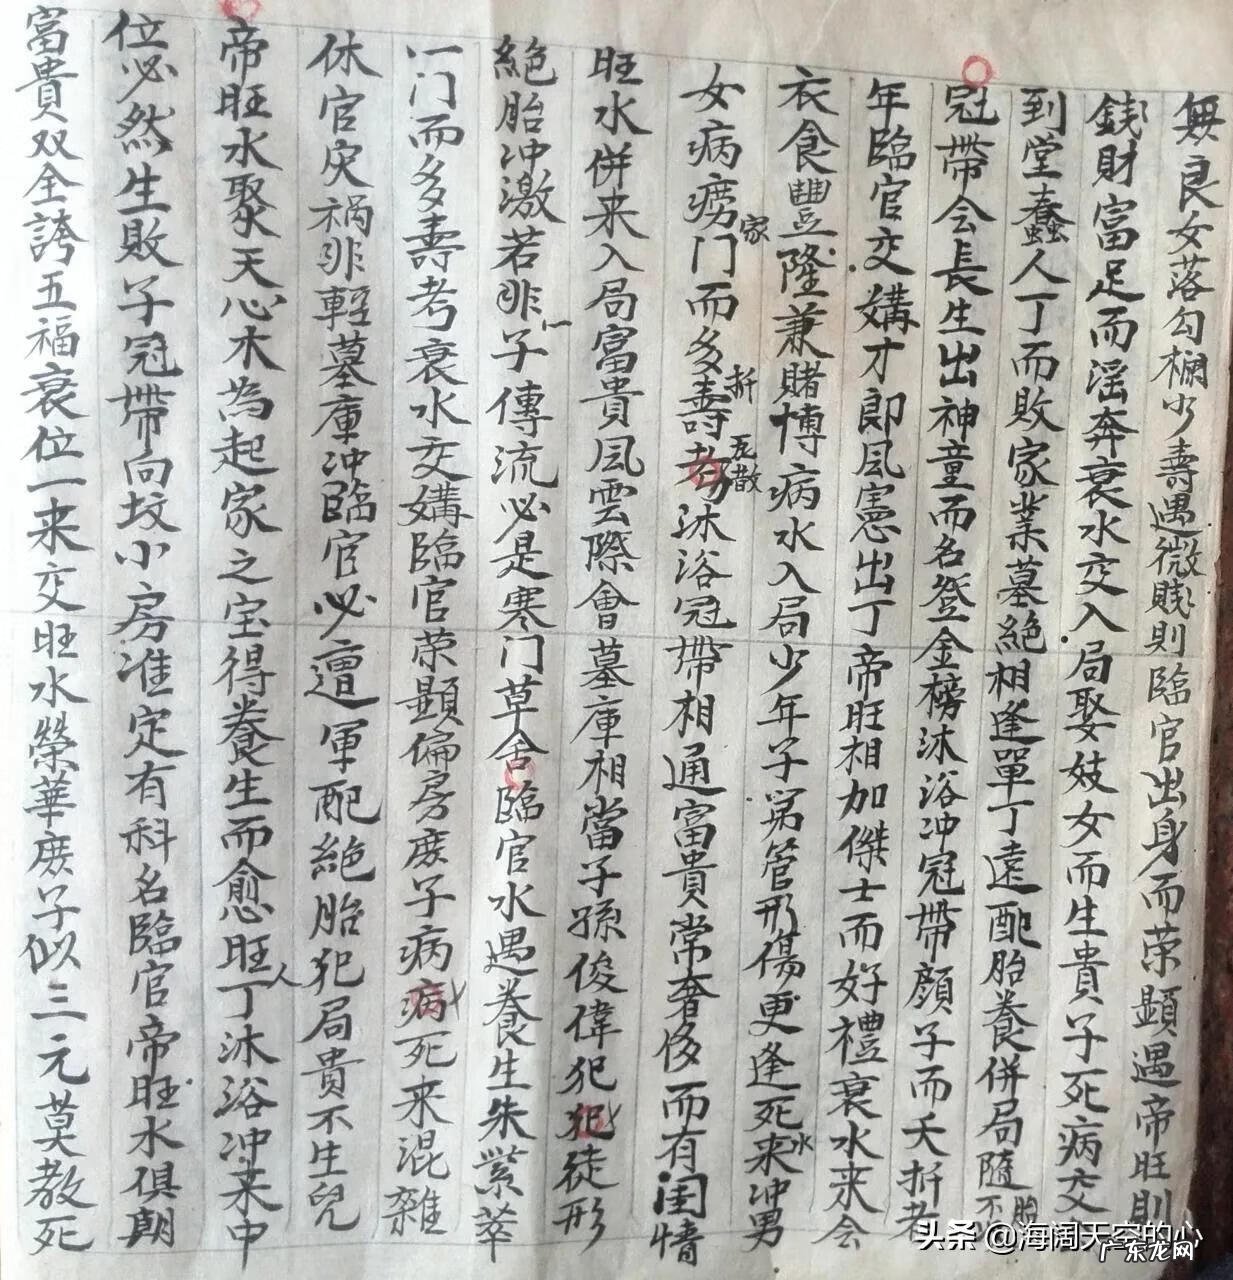 無良女落勾欄少壽遇微賤則臨官出身而荣顯遇帝旺則
錢財富足而滛奔衰水交入局娶妓女而生貴子死病交
到堂蠢人丁而敗家業墓絶相逢單丁遠配胎養併局隨胎不
冠帶会長生出神童而名登金榜沐浴冲冠帶顔子而夭折老
年臨官交媾才郎風憲出丁帝旺相加傑士而好禮衰水来会
衣食豐隆兼賭博病水入局少年子苐管形傷更逢死来水冲男
女病痨门家而多壽折考五散沐浴冠帶相通富貴常奢侈而有闺情
旺水併来入局富貴風雲際會墓庫相當子孫俊偉犯犯徒形
絶胎冲激若非一子傳流必是寒门草舍臨官水遇養生朱紫萃
一门而多壽考衰水交媾臨官荣顯偏房庶子病病死来混雜
休官灾禍非輕墓庫冲臨官必遭軍配絶胎犯局貴不生兒
帝旺水聚天心木為起家之宝得養生而愈旺人丁沐浴冲来中
位必然生敗子冠帶向坟小房准定有科名臨官帝旺水俱朝
富貴双全誇五福衰位一来交旺水榮華庶子似三元莫教死
头条 @海阔天空的心
广东龙网